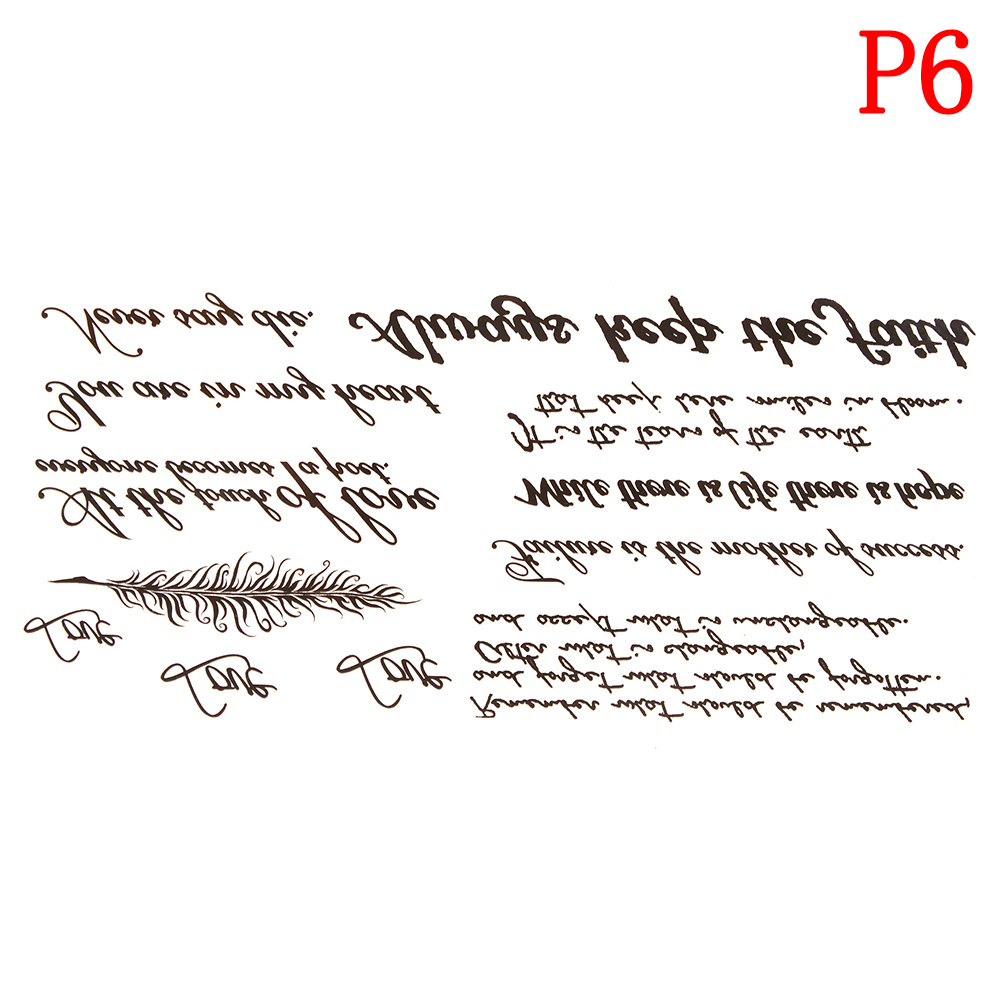 P6
Never say die.
Always keep the faith
You are in my heart
It is the tears of the earth
that keep here smiles in bloom.
At the touch of love
everyone becomes a poet.
While there is life there is hope
Failure is the mother of success.
Love
Love
Love
Remember what should be remembered,
and forget what should be forgotten.
Alter what is changeable,
and accept what is unchangeable.